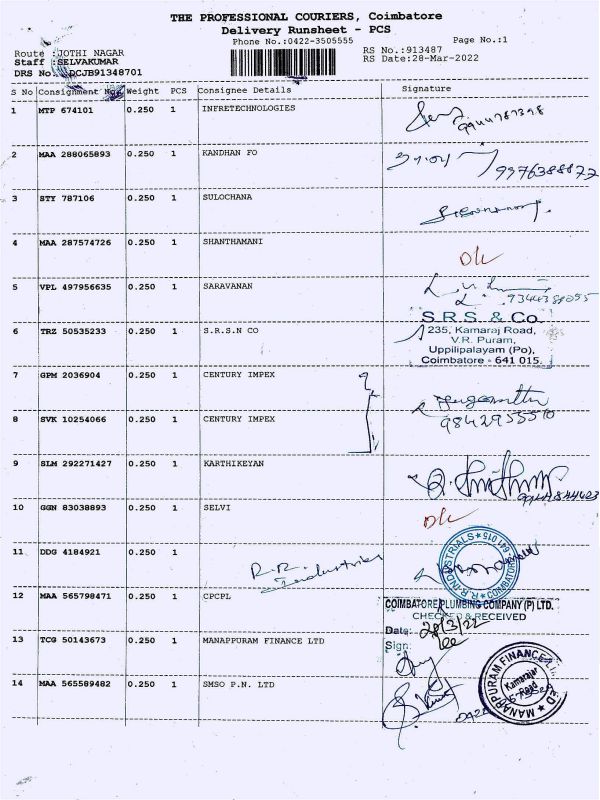 THE PROFESSIONAL COURIERS, Coimbatore
Delivery Runsheet - PCS
Phone No.:0422-3505555 Page No.:1
Route :JOTHI NAGAR RS No.:913487
Staff :SELVAKUMAR RS Date:28-Mar-2022
DRS No. :DCJB91348701
S No Consignment No. Weight PCS Consignee Details Signature
1 MTP 674101 0.250 1 INFRETECHNOLOGIES
2 MAA 288065893 0.250 1 KANDHAN FO
9976388877
3 STY 787106 0.250 1 SULOCHANA
4 MAA 287574726 0.250 1 SHANTHAMANI
5 VPL 497956635 0.250 1 SARAVANAN
S.R.S. & Co.
6 TRZ 50535233 0.250 1 S.R.S.N CO 235, Kamaraj Road,
V.R. Puram,
Uppilipalayam (Po),
Coimbatore - 641 015.
7 GPM 2036904 0.250 1 CENTURY IMPEX
8 SVK 10254066 0.250 1 CENTURY IMPEX
9 SLM 292271427 0.250 1 KARTHIKEYAN
10 GGN 83038893 0.250 1 SELVI
11 DDG 4184921 0.250 1 R.R. Industries
12 MAA 565798471 0.250 1 CPCPL COIMBATORE PLUMBING COMPANY (P) LTD.
CHECKED & RECEIVED
Date: 28/3/22
13 TCG 50143673 0.250 1 MANAPPURAM FINANCE LTD Sign:
14 MAA 565589482 0.250 1 SMSO P.N. LTD
MANAPPURAM FINANCE LTD
Kamarajar
Road